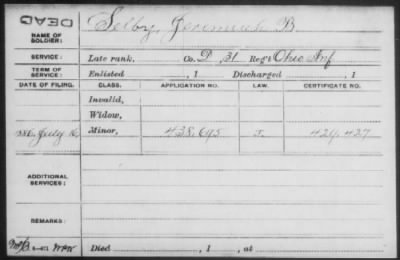 DEAD
NAME OF SOLDIER: Selby, Jeremiah B
SERVICE: Late rank, Co. D, 31 Reg't Ohio Inf
TERM OF SERVICE: Enlisted , 1 Discharged , 1
DATE OF FILING. CLASS. APPLICATION NO. LAW. CERTIFICATE NO.
Invalid,
Widow,
July Minor, 438,695 429,427
ADDITIONAL SERVICES:
REMARKS:
Died , 1 , at